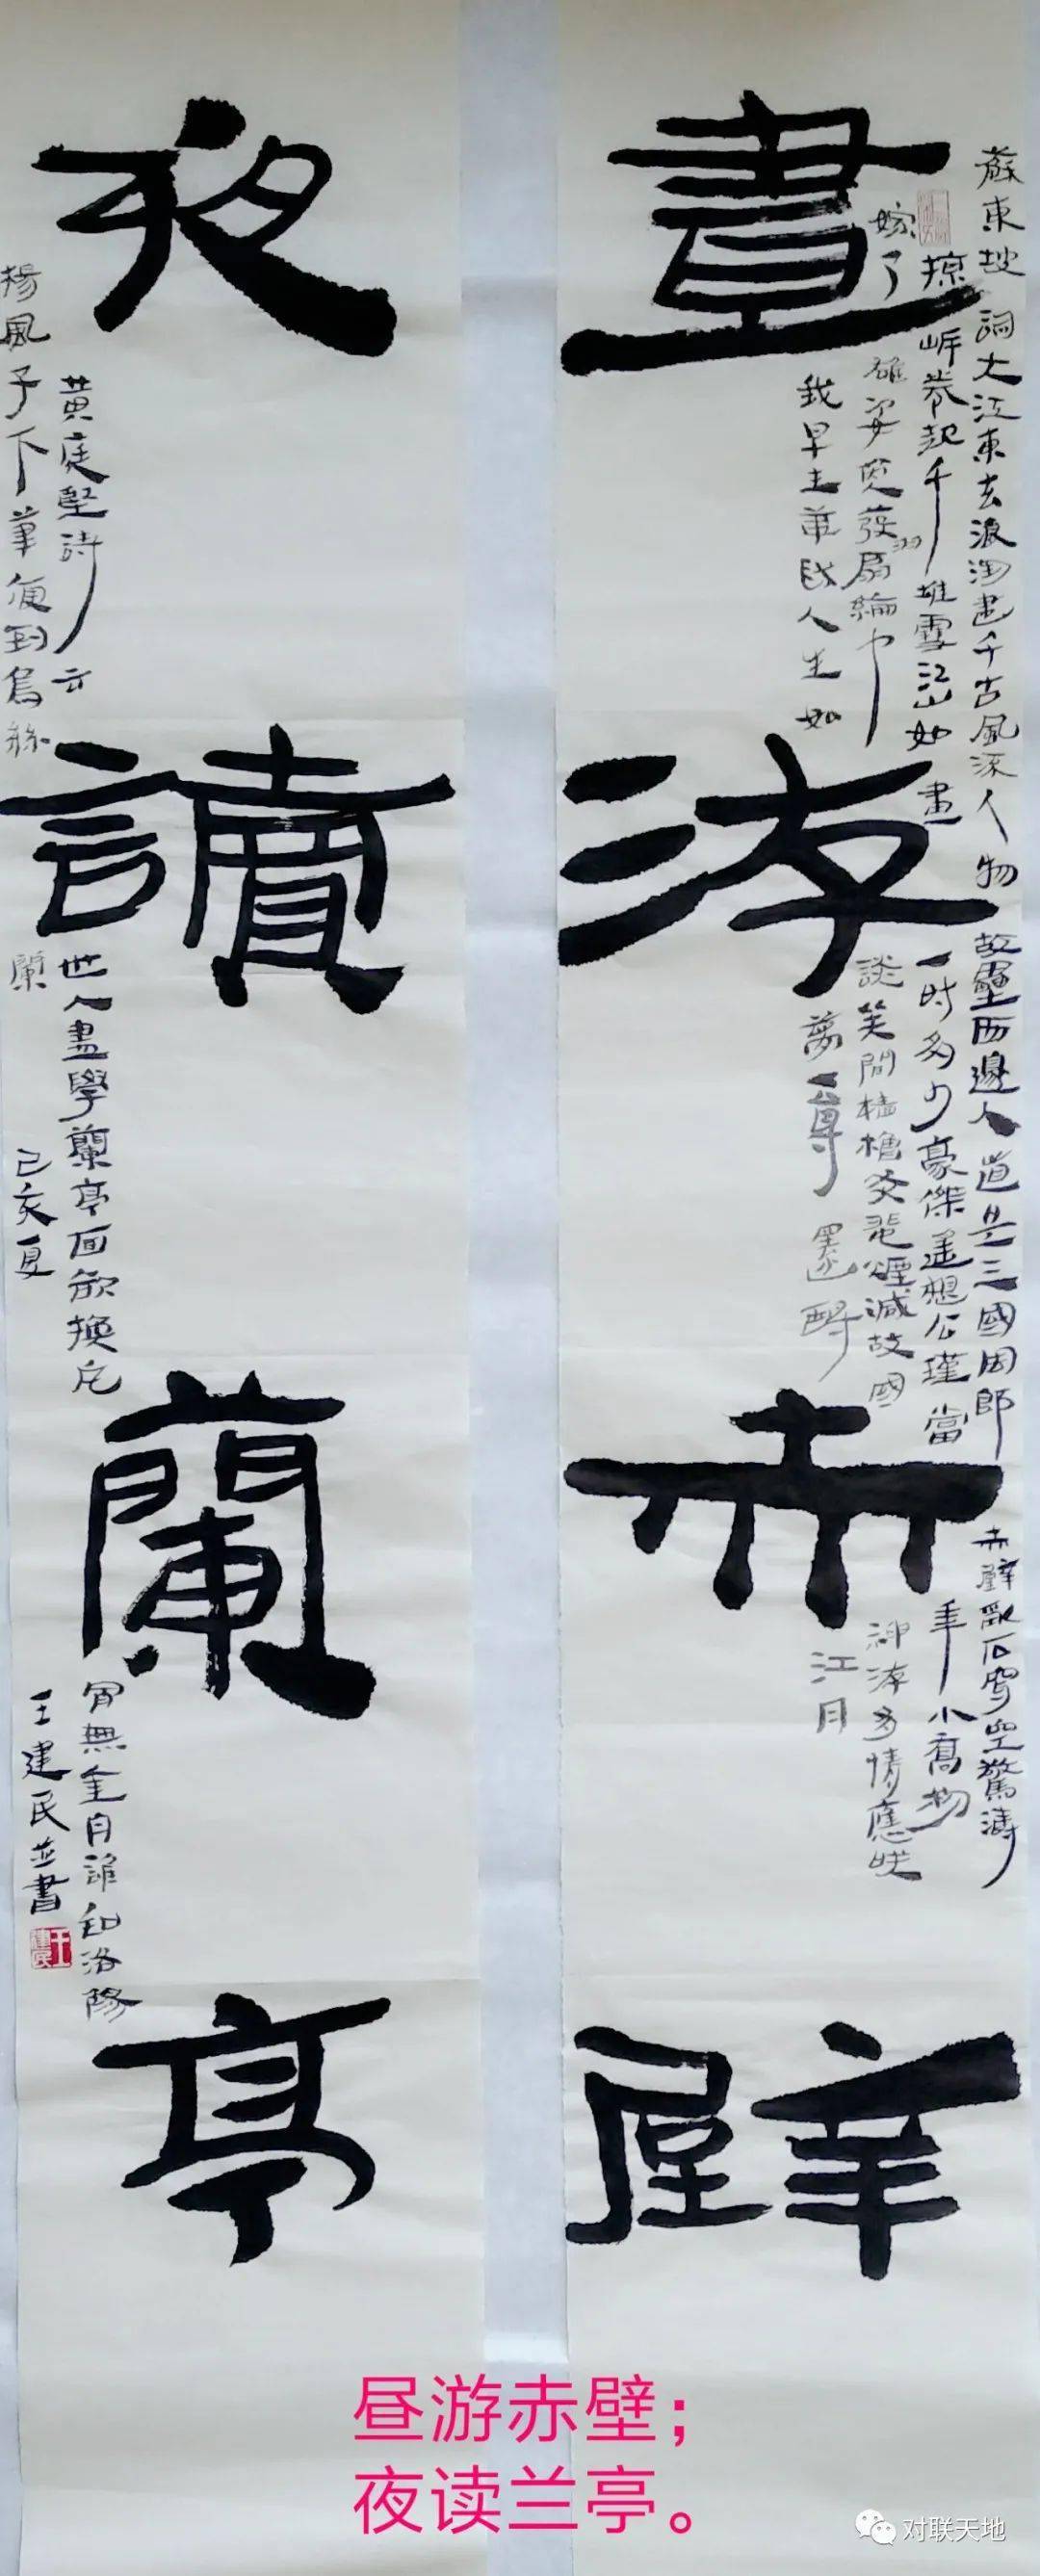 晝游赤壁
蘇東坡詞大江東去浪淘盡千古風流人物故壘西邊人道是三國周郎赤壁亂石穿空驚濤
掠岸卷起千堆雪江山如畫一時多少豪傑遙想公瑾當年小喬初
嫁了雄姿英發羽扇綸巾談笑間檣櫓灰飛煙滅故國神游多情應笑
我早生華髮人生如夢一尊還酹江月
夜讀蘭亭
黃庭堅詩云世人盡學蘭亭面欲換凡骨無金丹誰知洛陽
楊風子下筆便到烏絲闌己亥夏王建民並書
王建民
昼游赤壁；
夜读兰亭。
对联天地